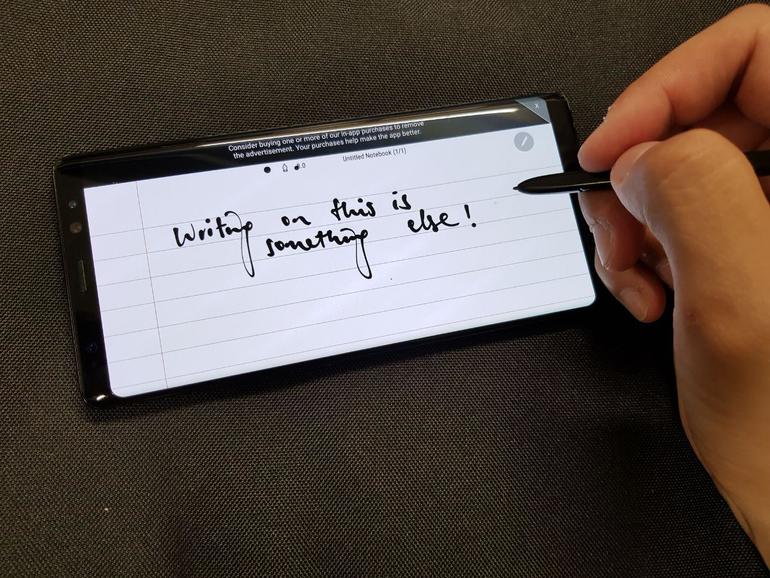 Consider buying one or more of our in-app purchases to remove
the advertisement. Your purchases help make the app better.
x
Untitled Notebook (1/1)
Writing on this is
something else!